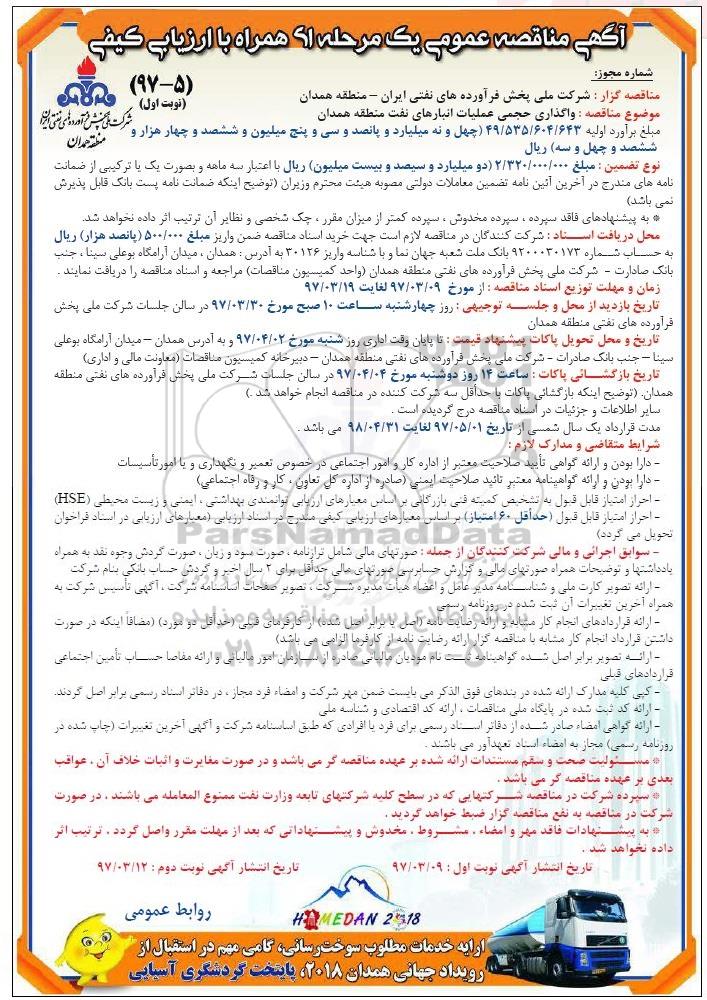 آگهی مناقصه عمومی یک مرحله ای همراه با ارزیابی کیفی
شماره مجوز:
(۹۷-۵)
(نوبت اول)
شرکت ملی پخش فرآورده های نفتی ایران
منطقه همدان
مناقصه گزار : شرکت ملی پخش فرآورده های نفتی ایران – منطقه همدان
موضوع مناقصه : واگذاری حجمی عملیات انبارهای نفت منطقه همدان
مبلغ برآورد اولیه ۴۹/۵۳۵/۶۰۴/۶۴۳ (چهل و نه میلیارد و پانصد و سی و پنج میلیون و ششصد و چهار هزار و
ششصد و چهل و سه) ریال
نوع تضمین : مبلغ ۲/۳۲۰/۰۰۰/۰۰۰ (دو میلیارد و سیصد و بیست میلیون) ریال با اعتبار سه ماهه و بصورت یک یا ترکیبی از ضمانت
نامه های مندرج در آخرین آئین نامه تضمین معاملات دولتی مصوبه هیئت محترم وزیران (توضیح اینکه ضمانت نامه پست بانک قابل پذیرش
نمی باشد)
* به پیشنهادهای فاقد سپرده ، سپرده مخدوش ، سپرده کمتر از میزان مقرر ، چک شخصی و نظایر آن ترتیب اثر داده نخواهد شد.
محل دریافت اسناد : شرکت کنندگان در مناقصه لازم است جهت خرید اسناد مناقصه ضمن واریز مبلغ ۵۰۰/۰۰۰ (پانصد هزار) ریال
به حساب شماره ۹۲۰۰۰۳۰۱۷۳ بانک ملت شعبه جهان نما و با شناسه واریز ۳۰۱۲۶ به آدرس : همدان ، میدان آرامگاه بوعلی سینا ، جنب
بانک صادارت – شرکت ملی پخش فرآورده های نفتی منطقه همدان (واحد کمیسیون مناقصات) مراجعه و اسناد مناقصه را دریافت نمایند .
زمان و مهلت توزیع اسناد مناقصه : از مورخ ۹۷/۰۳/۰۹ لغایت ۹۷/۰۳/۱۹
تاریخ بازدید از محل و جلسه توجیهی : روز چهارشنبه ساعت ۱۰ صبح مورخ ۹۷/۰۳/۳۰ در سالن جلسات شرکت ملی پخش
فرآورده های نفتی منطقه همدان
تاریخ و محل تحویل پاکات پیشنهاد قیمت : تا پایان وقت اداری روز شنبه مورخ ۹۷/۰۴/۰۲ و به آدرس همدان – میدان آرامگاه بوعلی
سینا – جنب بانک صادرات – شرکت ملی پخش فرآورده های نفتی منطقه همدان – دبیرخانه کمیسیون مناقصات (معاونت مالی و اداری)
تاریخ بازگشائی پاکات : ساعت ۱۴ روز دوشنبه مورخ ۹۷/۰۴/۰۴ در سالن جلسات شرکت ملی پخش فرآورده های نفتی منطقه
همدان. (توضیح اینکه بازگشائی پاکات با حداقل سه شرکت کننده در مناقصه انجام خواهد شد .)
سایر اطلاعات و جزئیات در اسناد مناقصه درج گردیده است .
مدت قرارداد یک سال شمسی از تاریخ ۹۷/۰۵/۰۱ لغایت ۹۸/۰۴/۳۱ می باشد .
شرایط متقاضی و مدارک لازم :
– دارا بودن و ارائه گواهی تأیید صلاحیت معتبر از اداره کار و امور اجتماعی در خصوص تعمیر و نگهداری و یا امورتأسیسات
– دارا بودن و ارائه گواهینامه معتبر تائید صلاحیت ایمنی (صادره از اداره کل تعاون ، کار و رفاه اجتماعی)
– احراز امتیاز قابل قبول به تشخیص کمیته فنی بازرگانی بر اساس معیارهای ارزیابی توانمندی بهداشتی ، ایمنی و زیست محیطی (HSE)
– احراز امتیاز قابل قبول (حداقل ۶۰ امتیاز) بر اساس معیارهای ارزیابی کیفی مندرج در اسناد ارزیابی (معیارهای ارزیابی در اسناد فراخوان
تحویل می گردد)
– سوابق اجرائی و مالی شرکت کنندگان از جمله : صورتهای مالی شامل ترازنامه ، صورت سود و زیان ، صورت گردش وجوه نقد به همراه
یادداشتها و توضیحات همراه صورتهای مالی و گزارش حسابرسی صورتهای مالی حداقل برای ۲ سال اخیر و گردش حساب بانکی بنام شرکت
– ارائه تصویر کارت ملی و شناسنامه مدیر عامل و اعضاء هیأت مدیره شرکت ، تصویر صفحات اساسنامه شرکت ، آگهی تأسیس شرکت به
همراه آخرین تغییرات آن ثبت شده در روزنامه رسمی
– ارائه قراردادهای انجام کار مشابه و ارائه رضایت نامه (اصل یا برابر اصل شده) از کارفرمای قبلی (حداقل دو مورد) (مضافاً اینکه در صورت
داشتن قرارداد انجام کار مشابه با مناقصه گزار ارائه رضایت نامه از کارفرما الزامی می باشد)
– ارائه تصویر برابر اصل شده گواهینامه ثبت نام مودیان مالیاتی صادره از سازمان امور مالیاتی و ارائه مفاصا حساب تأمین اجتماعی
قراردادهای قبلی
– کپی کلیه مدارک ارائه شده در بندهای فوق الذکر می بایست ضمن مهر شرکت و امضاء فرد مجاز ، در دفاتر اسناد رسمی برابر اصل گردند.
– ارائه کد ثبت شده در پایگاه ملی مناقصات ، ارائه کد اقتصادی و شناسه ملی
– ارائه گواهی امضاء صادر شده از دفاتر اسناد رسمی برای فرد یا افرادی که طبق اساسنامه شرکت و آگهی آخرین تغییرات (چاپ شده در
روزنامه رسمی) مجاز به امضاء اسناد تعهدآور می باشند .
* مسئولیت صحت و سقم مستندات ارائه شده بر عهده مناقصه گر می باشد و در صورت مغایرت و اثبات خلاف آن ، عواقب
بعدی بر عهده مناقصه گر می باشد .
* سپرده شرکت در مناقصه شرکتهایی که در سطح کلیه شرکتهای تابعه وزارت نفت ممنوع المعامله می باشند ، در صورت
شرکت در مناقصه به نفع مناقصه گزار ضبط خواهد گردید .
* به پیشنهادات فاقد مهر و امضاء ، مشروط ، مخدوش و پیشنهاداتی که بعد از مهلت مقرر واصل گردد ، ترتیب اثر
داده نخواهد شد .
تاریخ انتشار آگهی نوبت اول : ۹۷/۰۳/۰۹ تاریخ انتشار آگهی نوبت دوم : ۹۷/۰۳/۱۲
روابط عمومی
HAMEDAN 2018
ارایه خدمات مطلوب سوخت‌رسانی، گامی مهم در استقبال از
رویداد جهانی همدان ۲۰۱۸، پایتخت گردشگری آسیایی
ParsNamadData
۰۲۱-۸۸۳۴۹۶۷۰-۵